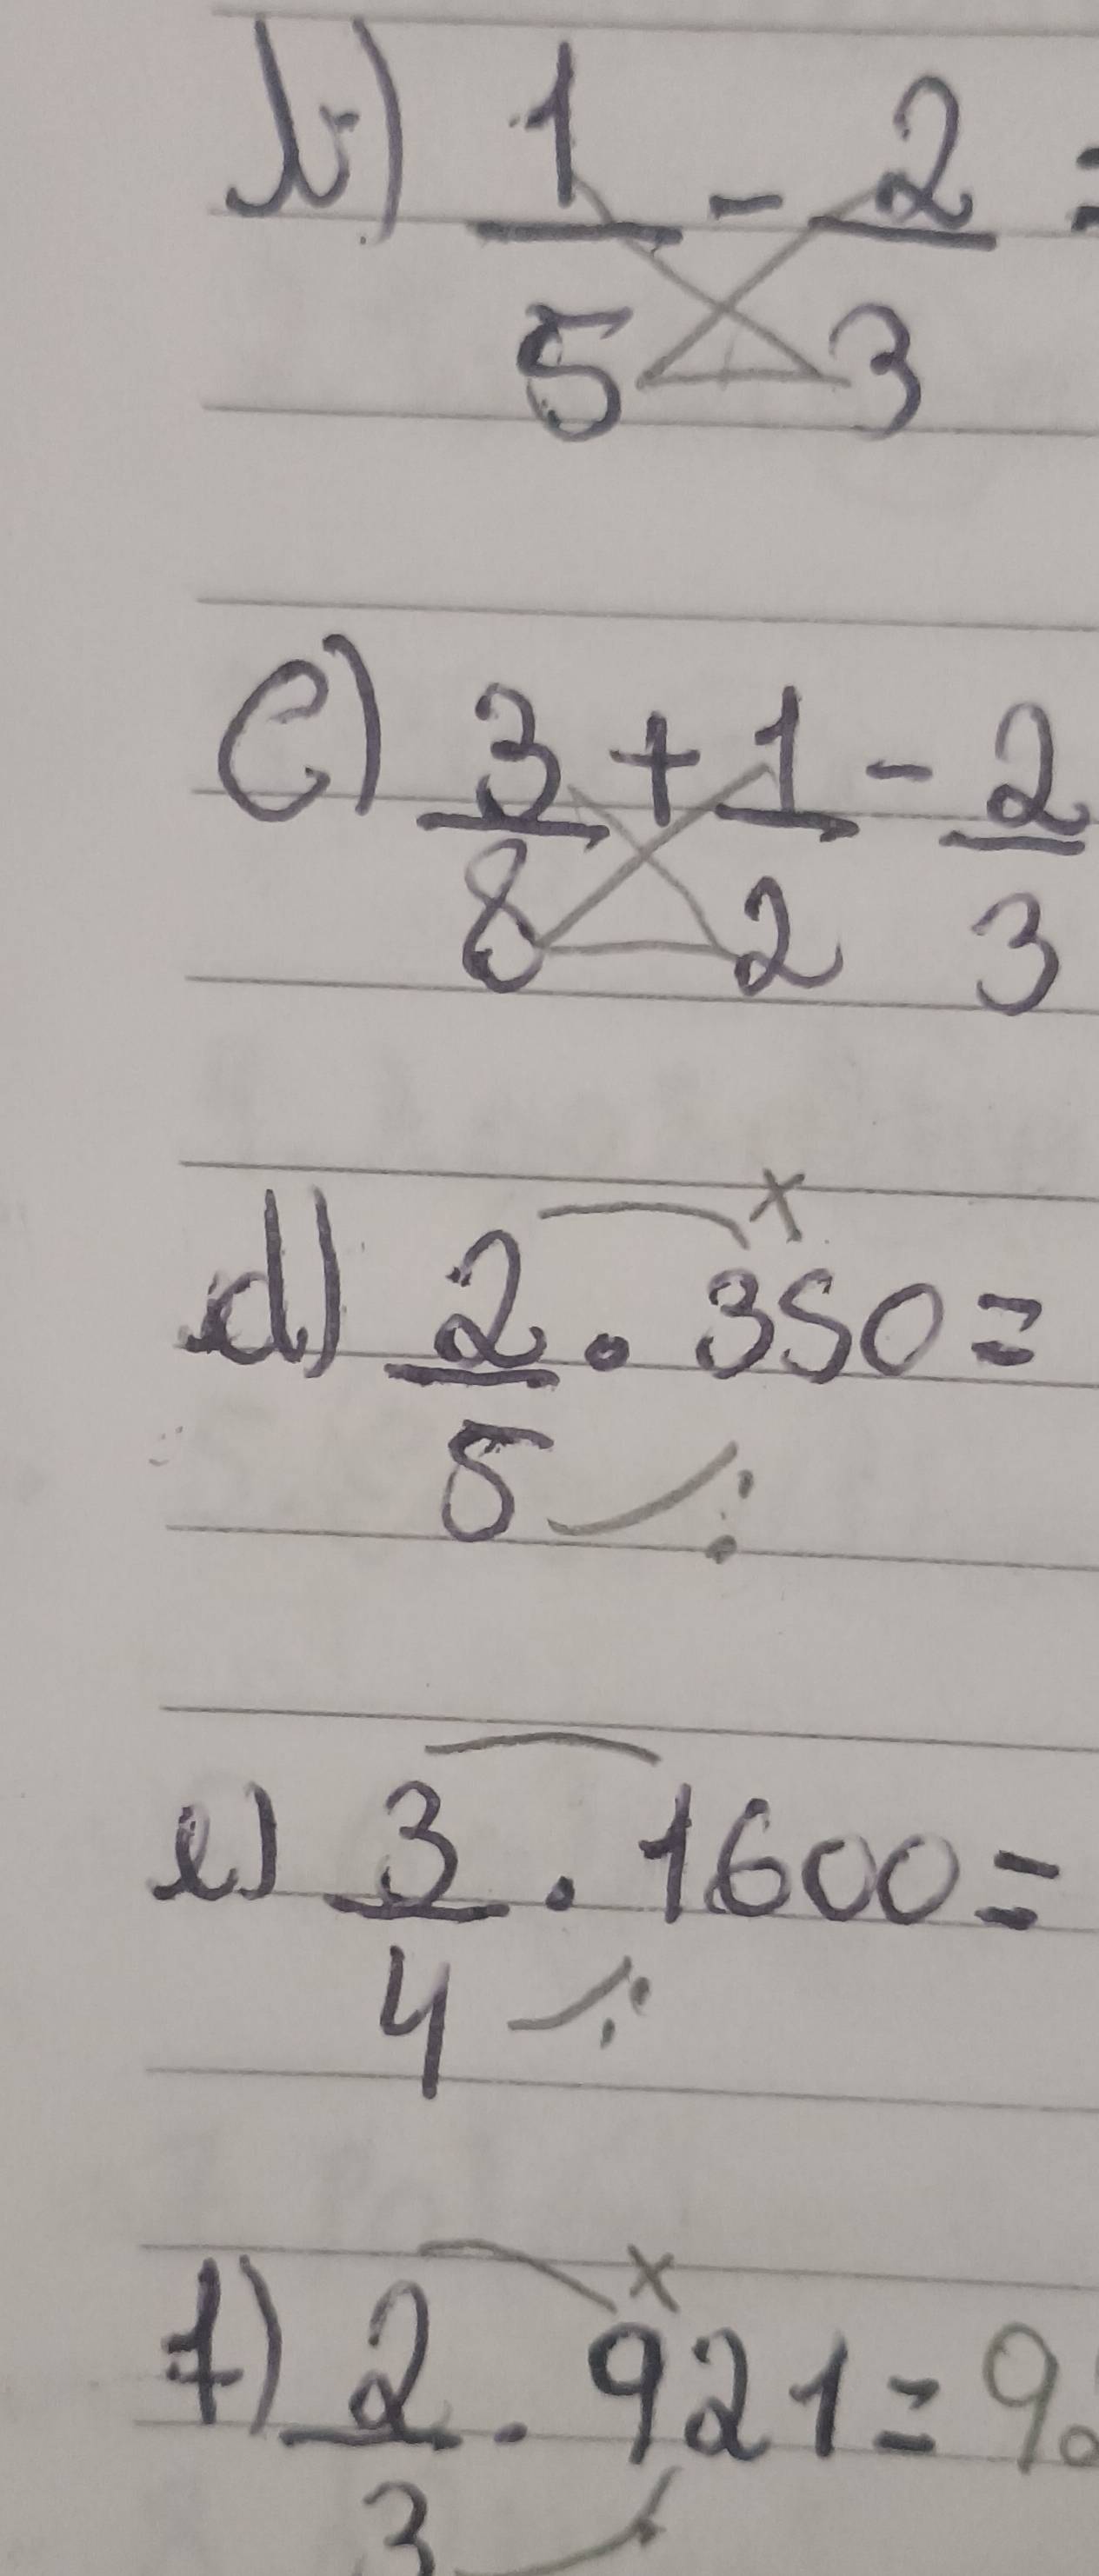 b) 1/5 - 2/3 =
c) 3/8 + 1/2 - 2/3
d) 2/5 . 350 =
x
:
e) 3/4 . 1600 =
:
f) 2/3 . 921 = 9
x